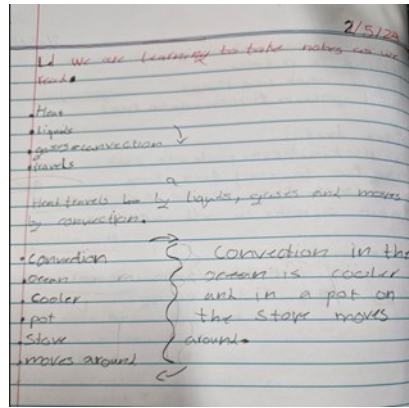 2/5/24
LI we are learning to take notes as we
read.
• Heat
• Liquids
• gases convection
• travels
Heat travels by liquids, gases and moves
by convection.
• Convection
• Ocean
• Cooler
• pot
• Stove
• moves around
Convection in the
ocean is cooler
and in a pot on
the stove moves
around.